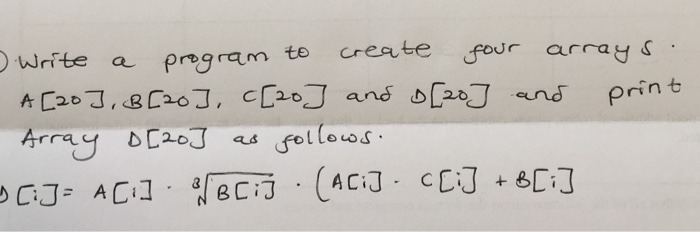 ) Write a program to create four arrays.
A[20], B[20], C[20] and D[20] and print
Array D[20] as follows.
D[i]= A[i] . ∛B[i] . (A[i] . C[i] + B[i]